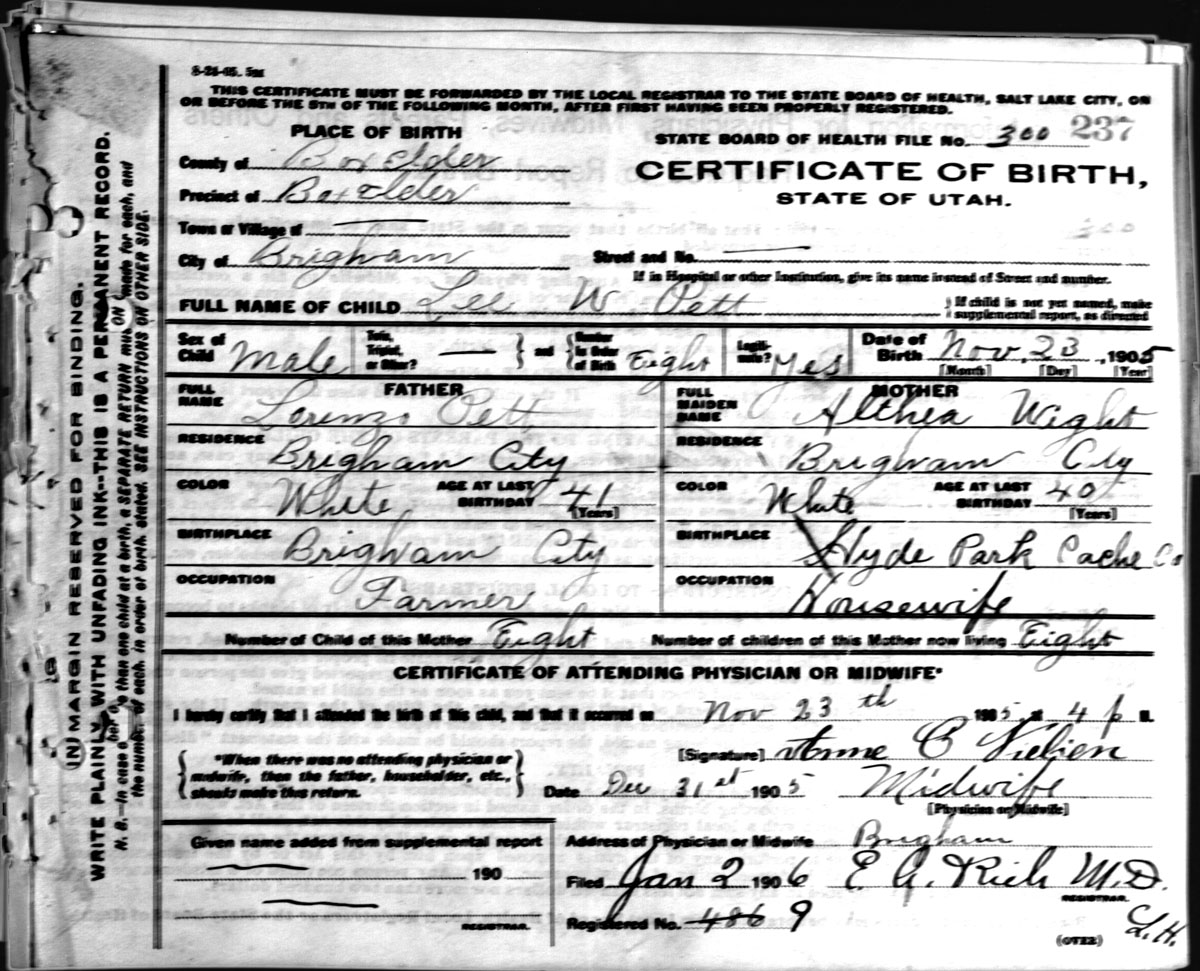 8-24-05. 5M
THIS CERTIFICATE MUST BE FORWARDED BY THE LOCAL REGISTRAR TO THE STATE BOARD OF HEALTH, SALT LAKE CITY, ON
OR BEFORE THE 5TH OF THE FOLLOWING MONTH, AFTER FIRST HAVING BEEN PROPERLY REGISTERED.
PLACE OF BIRTH
STATE BOARD OF HEALTH FILE No. 300 237
County of Box Elder
CERTIFICATE OF BIRTH,
Precinct of Box Elder
STATE OF UTAH.
Town or Village of
300
City of Brigham
Street and No.
If in Hospital or other Institution, give its name instead of Street and number.
FULL NAME OF CHILD Lee W. Pett
If child is not yet named, make
supplemental report, as directed
Sex of Child Male
Twin, Triplet, or Other? — and Number in Order of Birth Eight
Legitimate? Yes
Date of Birth Nov. 23, 1905
[Month] [Day] [Year]
FATHER
MOTHER
FULL NAME Lorenzo Pett
FULL MAIDEN NAME Althea Wight
RESIDENCE Brigham City
RESIDENCE Brigham City
COLOR White AGE AT LAST BIRTHDAY 41 [Years]
COLOR White AGE AT LAST BIRTHDAY 40 [Years]
BIRTHPLACE Brigham City
BIRTHPLACE Hyde Park Cache Co
OCCUPATION Farmer
OCCUPATION Housewife
Number of Child of this Mother Eight Number of children of this Mother now living Eight
CERTIFICATE OF ATTENDING PHYSICIAN OR MIDWIFE*
I hereby certify that I attended the birth of this child, and that it occurred on Nov 23th 1905 at 4 p M.
[Signature] Anne C Nielsen
*When there was no attending physician or
midwife, then the father, householder, etc.,
should make this return.
Date Dec 31st 1905 Midwife
[Physician or Midwife]
Given name added from supplemental report
190
REGISTRAR.
Address of Physician or Midwife Brigham
Filed Jan 2 1906 E. G. Rich M.D.
REGISTRAR.
Registered No. 486 9
(OVER)
L.H.
(IN) MARGIN RESERVED FOR BINDING.
WRITE PLAINLY WITH UNFADING INK--THIS IS A PERMANENT RECORD.
N. B.—In case of more than one child at a birth, a SEPARATE RETURN must be made for each, and
the number of each, in order of birth, stated. SEE INSTRUCTIONS ON OTHER SIDE.